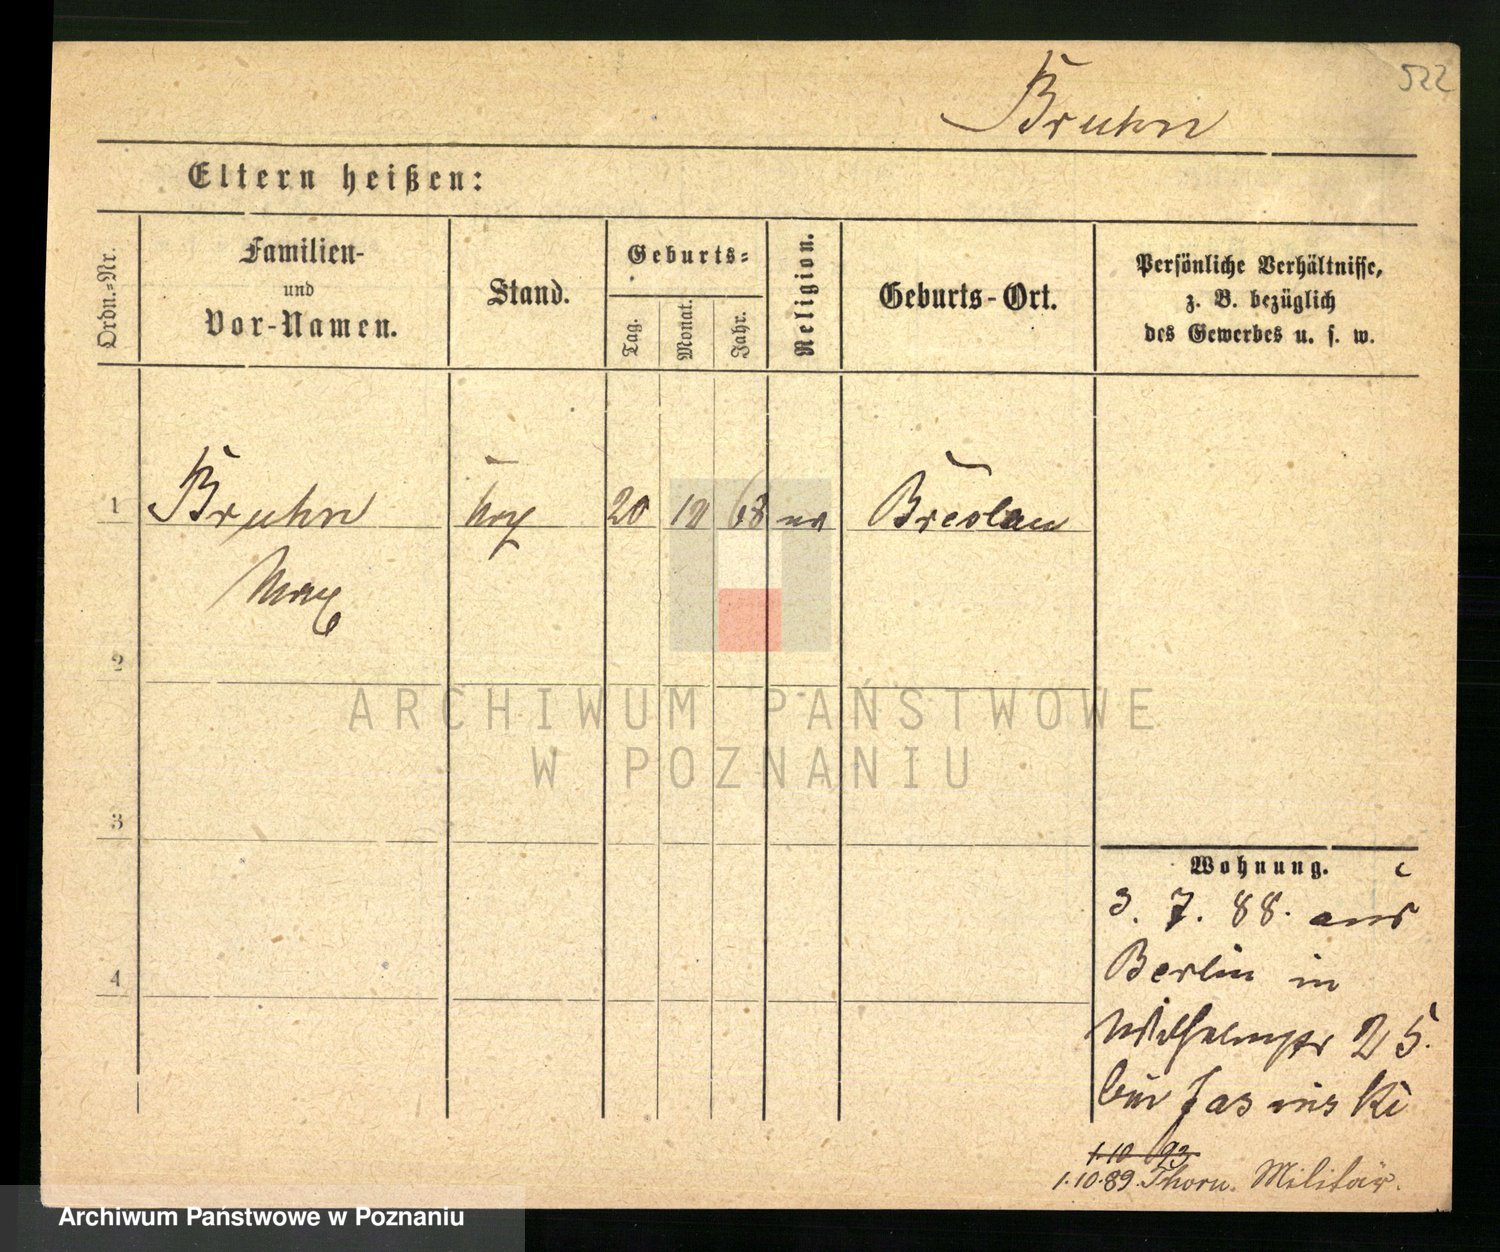 522
Bruhn
Eltern heißen:
Ordn.-Nr.
Familien-
und
Vor-Namen.
Stand.
Geburts-
Tag.
Monat.
Jahr.
Religion.
Geburts-Ort.
Persönliche Verhältnisse,
z. B. bezüglich
des Gewerbes u. s. w.
1 Bruhn 20 12 68 Breslau
Max
2
3
4
ARCHIWUM PAŃSTWOWE
W POZNANIU
Wohnung.
3. 7. 88. aus
Berlin in
Wilhelmstr 25.
bei Jasinski
1.10 93
1.10.89. Thorn. Militär.
Archiwum Państwowe w Poznaniu